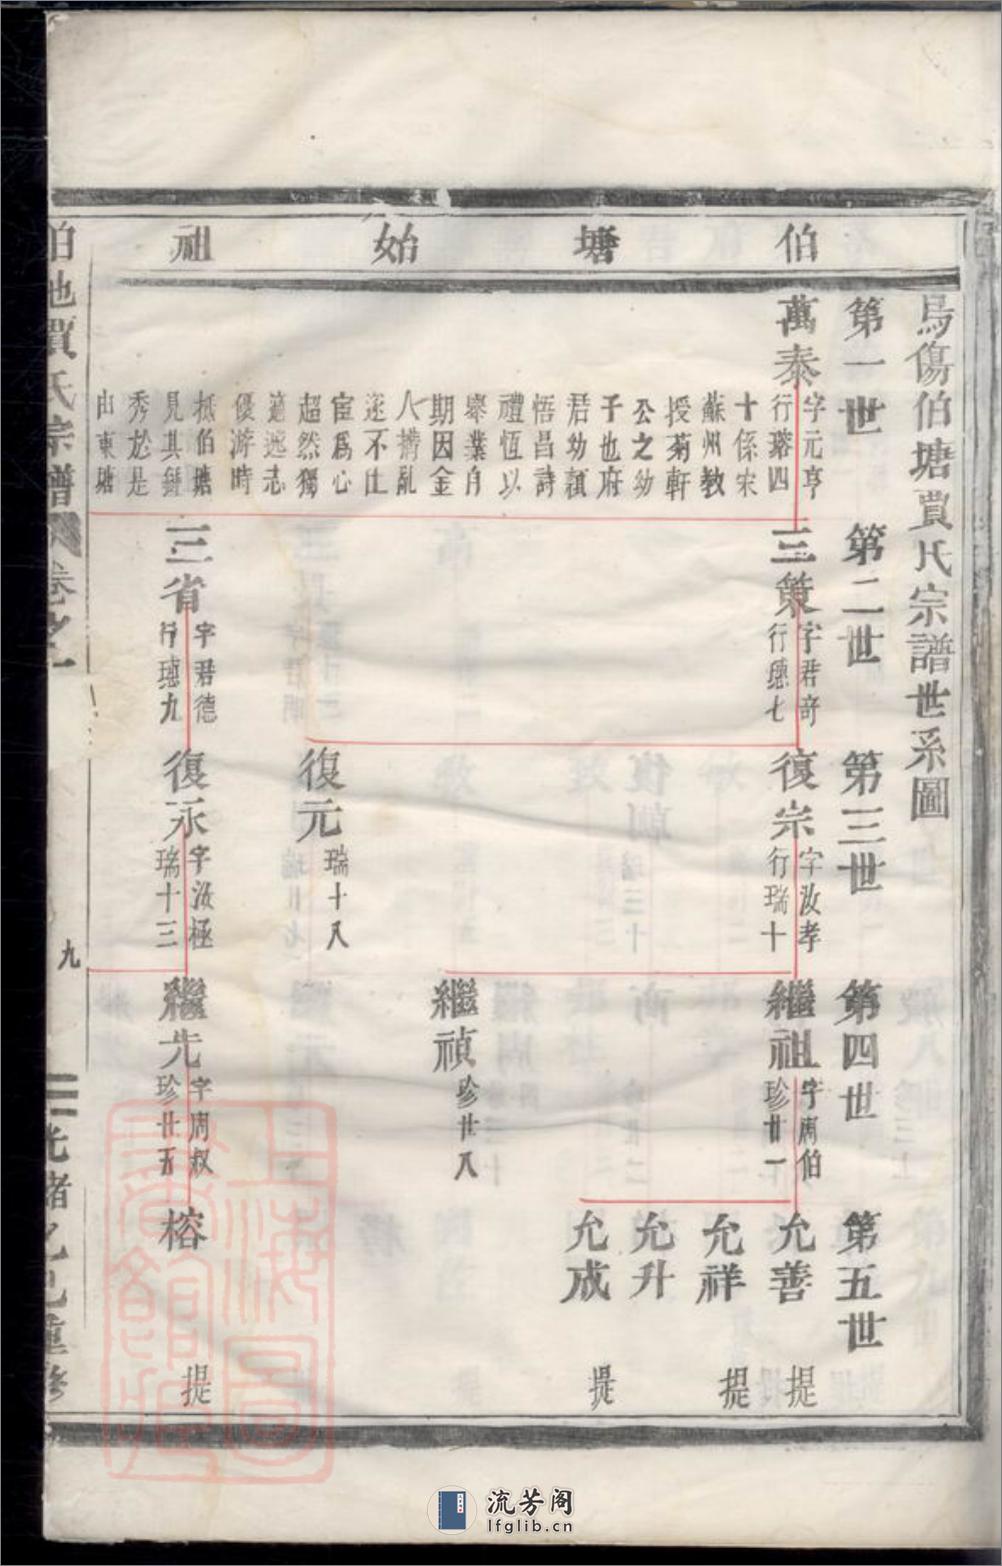 伯塘始祖
烏傷伯塘賈氏宗譜世系圖
第一世
第二世
第三世
第四世
第五世
萬泰
字元亨
行瑢四
十係宋
蘇州教
授菊軒
公之幼
子也府
君幼穎
悟昌詩
禮恆以
舉業自
期因金
人擠亂
遂不仕
宦爲心
超然獨
適遯志
優游時
抵伯塘
見其鍾
秀於是
由東塘
三策
字君奇
行璁七
復宗
字汝孝
行瑞十
繼祖
字周伯
珍廿一
允善
提
允祥
提
允升
允成
提
繼禎
珍廿八
復元
瑞十八
三省
字君德
行璁九
復永
字汝極
瑞十三
繼先
字周叔
珍廿五
榕
提
賈氏宗譜
卷之一
九
光緒乙巳重修
上海圖書館藏
流芳阁
lfglib.cn